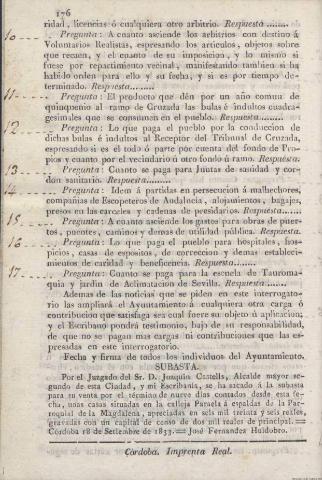 176
ridad, licencias ó cualquiera otro arbitrio. Respuesta.......
10 Pregunta: A cuanto asciende los arbitrios con destino á
Voluntarios Realistas, espresando los artículos, objetos sobre
que recaen, y el cuanto de su imposicion, y lo mismo si
fuese por repartimiento vecinal, manifestando tambien si ha
habido orden para ello y su fecha, y si es por tiempo de-
terminado. Respuesta.......
11 Pregunta: El producto que dén por un año comun de
quinquenio al ramo de Cruzada las bulas é indultos cuadra-
gesimales que se consumen en el pueblo. Respuesta.......
12 Pregunta: Lo que paga el pueblo por la conduccion de
dichas bulas é indultos al Receptor del Tribunal de Cruzada,
espresando si es el todo ó parte por cuenta del fondo de Pro-
pios y cuanto por el vecindario ú otro fondo ú ramo. Respuesta.
13 Pregunta: Cuanto se paga para Juntas de sanidad y cor-
don sanitario. Respuesta.......
14 Pregunta: Idem á partidas en persecucion á malhechores,
compañias de Escopeteros de Andalucia, alojamientos, bagajes,
presos en las carceles y cadenas de presidarios. Respuesta......
15 Pregunta: A cuanto asciende los gastos para obras de puer-
tos, puentes, caminos y demas de utilidad pública. Respuesta.
16 Pregunta: Lo que paga el pueblo para hospitales, hos-
picios, casas de espositos, de correccion y demas estableci-
mientos de caridad y beneficencia. Respuesta.......
17 Pregunta: Cuanto se paga para la escuela de Tauroma-
quia y jardin de Aclimatacion de Sevilla. Respuesta......
Ademas de las noticias que se piden en este interrogato-
rio las ampliará el Ayuntamiento á cualquiera otra carga ó
contribucion que satisfaga sea cual fuere su objeto ú aplicacion;
y el Escribano pondrá testimonio, bajo de su responsabilidad,
de que no se pagan mas cargas ni contribuciones que las es-
presadas en este interrogatorio.
Fecha y firma de todos los individuos del Ayuntamiento.
SUBASTA.
Por el Juzgado del Sr. D. Joaquin Castells, Alcalde mayor se-
gundo de esta Ciudad, y mi Escribanía, se ha sacado á la subasta
para su venta por el término de nueve dias contados desde esta fe-
cha, unas casas situadas en la calleja Parsela á espaldas de la Par-
roquial de la Magdalena, apreciadas en seis mil treinta y seis reales,
gravadas con un capital de censo de dos mil reales de principal. =
Córdoba 18 de Setiembre de 1833. = José Fernandez Huidobro.
Córdoba. Imprenta Real.